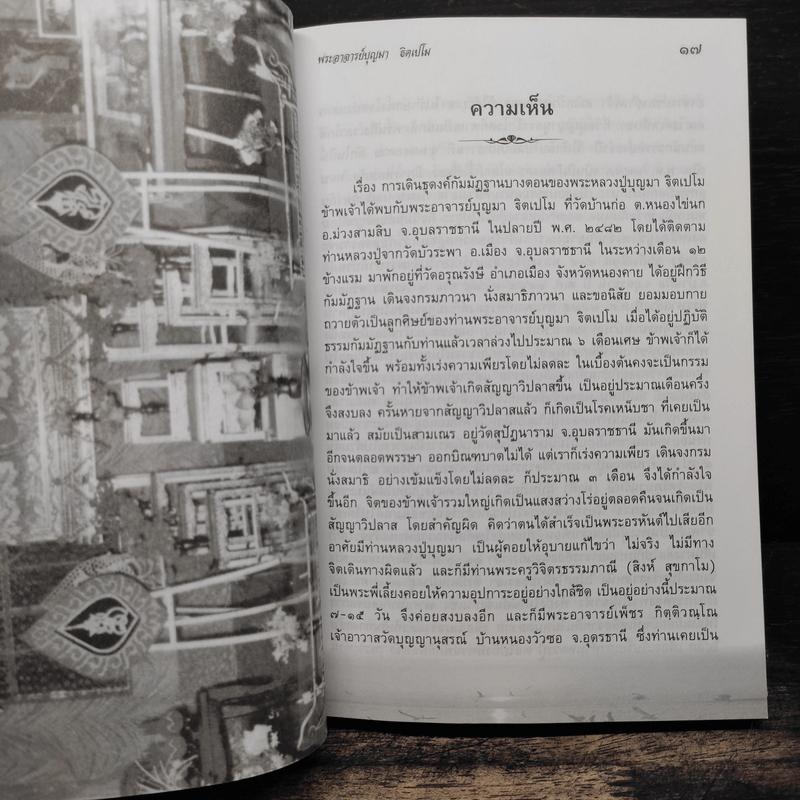 พระอาจารย์บุญมา ฐิตเปโม
๑๗
ความเห็น
เรื่อง การเดินธุดงค์กัมมัฏฐานบางตอนของพระหลวงปู่บุญมา ฐิตเปโม
ข้าพเจ้าได้พบกับพระอาจารย์บุญมา ฐิตเปโม ที่วัดบ้านก่อ ต.หนองไข่นก
อ.ม่วงสามสิบ จ.อุบลราชธานี ในปลายปี พ.ศ. ๒๔๘๒ โดยได้ติดตาม
ท่านหลวงปู่จากวัดบัวระพา อ.เมือง จ.อุบลราชธานี ในระหว่างเดือน ๑๒
ข้างแรม มาพักอยู่ที่วัดอรุณรังษี อำเภอเมือง จังหวัดหนองคาย ได้อยู่ฝึกวิธี
กัมมัฏฐาน เดินจงกรมภาวนา นั่งสมาธิภาวนา และขอนิสัย ยอมมอบกาย
ถวายตัวเป็นลูกศิษย์ของท่านพระอาจารย์บุญมา ฐิตเปโม เมื่อได้อยู่ปฏิบัติ
ธรรมกัมมัฏฐานกับท่านแล้วเวลาล่วงไปประมาณ ๖ เดือนเศษ ข้าพเจ้าก็ได้
กำลังใจขึ้น พร้อมทั้งเร่งความเพียรโดยไม่ลดละ ในเบื้องต้นคงจะเป็นกรรม
ของข้าพเจ้า ทำให้ข้าพเจ้าเกิดสัญญาวิปลาสขึ้น เป็นอยู่ประมาณเดือนครึ่ง
จึงสงบลง ครั้นหายจากสัญญาวิปลาสแล้ว ก็เกิดเป็นโรคเหน็บชา ที่เคยเป็น
มาแล้ว สมัยเป็นสามเณร อยู่วัดสุปัฏนาราม จ.อุบลราชธานี มันเกิดขึ้นมา
อีกจนตลอดพรรษา ออกบิณฑบาตไม่ได้ แต่เราก็เร่งความเพียร เดินจงกรม
นั่งสมาธิ อย่างเข้มแข็งโดยไม่ลดละ ก็ประมาณ ๓ เดือน จึงได้กำลังใจ
ขึ้นอีก จิตของข้าพเจ้ารวมใหญ่เกิดเป็นแสงสว่างโร่อยู่ตลอดคืนจนเกิดเป็น
สัญญาวิปลาส โดยสำคัญผิด คิดว่าตนได้สำเร็จเป็นพระอรหันต์ไปเสียอีก
อาศัยมีท่านหลวงปู่บุญมา เป็นผู้คอยให้อุบายแก้ไขว่า ไม่จริง ไม่มีทาง
จิตเดินทางผิดแล้ว และก็มีท่านพระครูวิจิตรธรรมภาณี (สิงห์ สุขกาโม)
เป็นพระพี่เลี้ยงคอยให้ความอุปการะอยู่อย่างใกล้ชิด เป็นอยู่อย่างนี้ประมาณ
๗-๑๕ วัน จึงค่อยสงบลงอีก และก็มีพระอาจารย์เพ็ชร กิตฺติวณฺโณ
เจ้าอาวาสวัดบุญญานุสรณ์ บ้านหนองวัวซอ จ.อุดรธานี ซึ่งท่านเคยเป็น